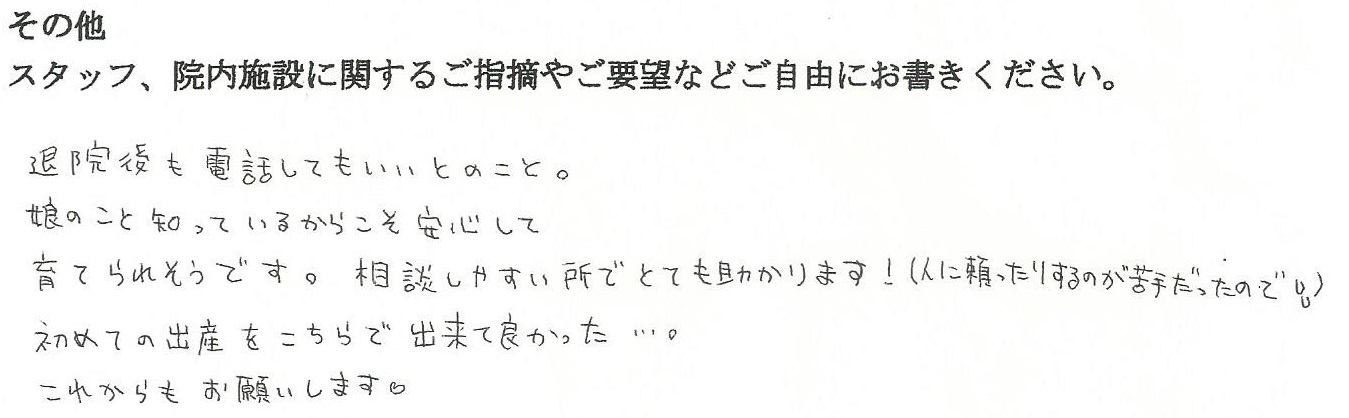 その他
スタッフ、院内施設に関するご指摘やご要望などご自由にお書きください。
退院後も電話してもいいとのこと。
娘のこと知っているからこそ安心して
育てられそうです。相談しやすい所でとても助かります!(人に頼ったりするのが苦手だったので)
初めての出産をこちらで出来て良かった…。
これからもお願いします。